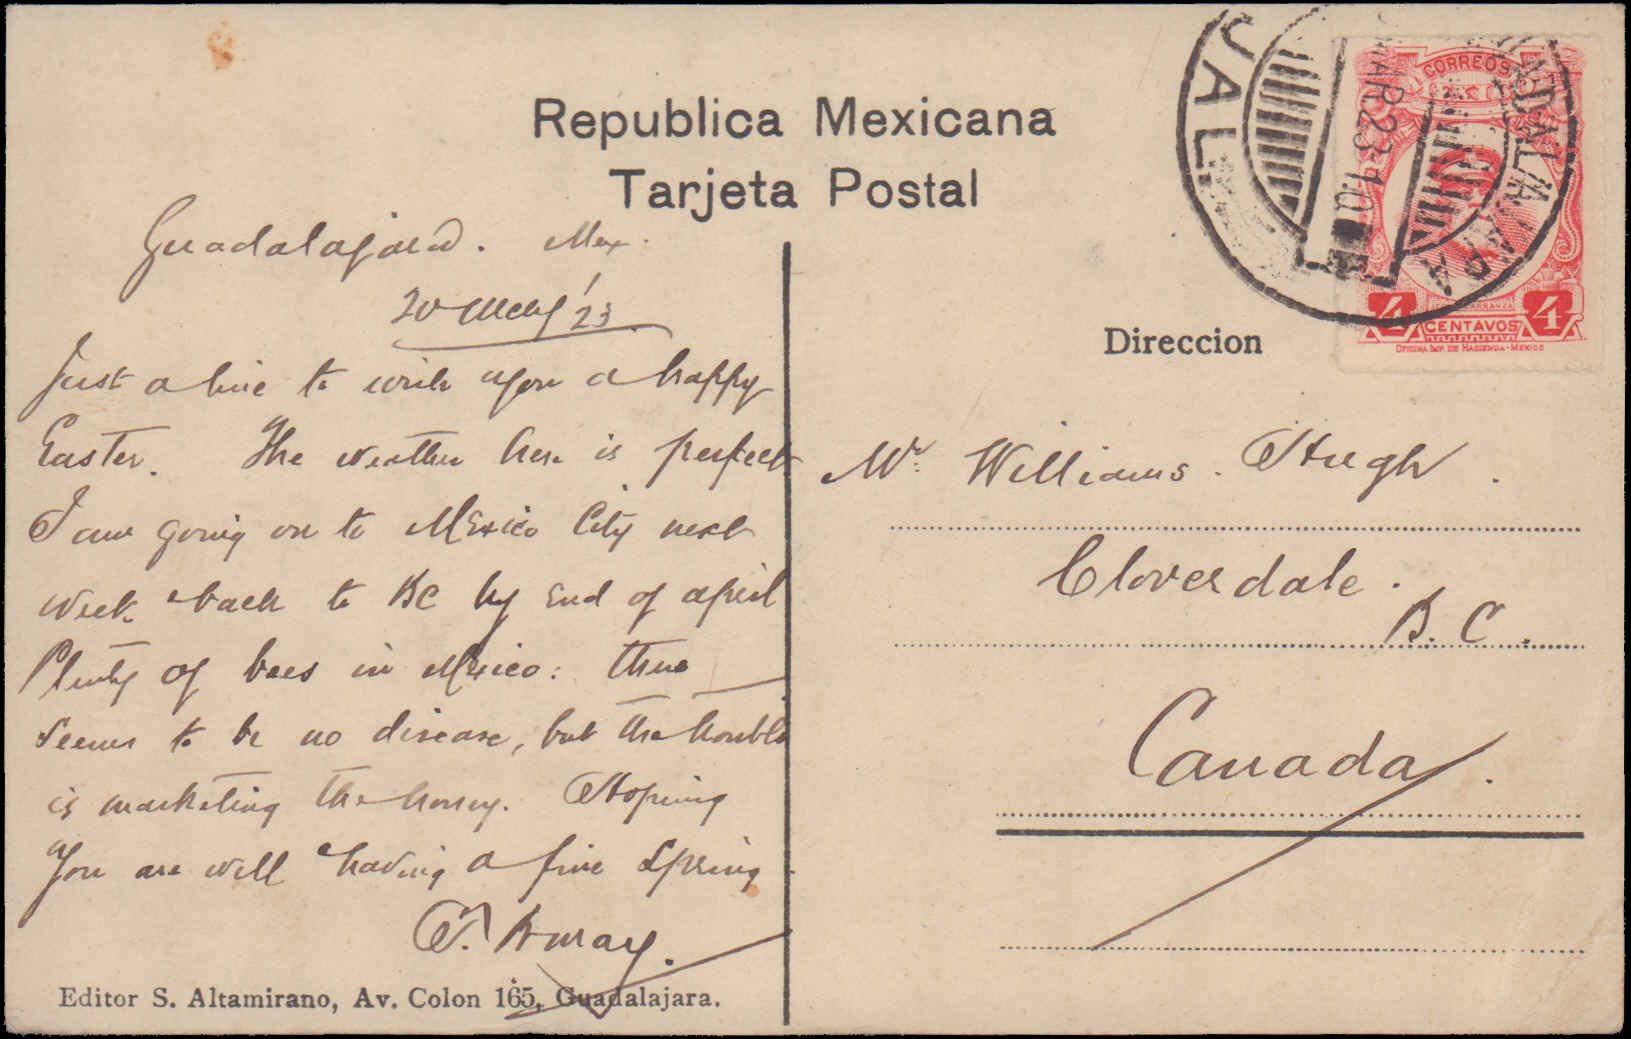 Republica Mexicana
Tarjeta Postal
Guadalajara. Mex.
20 March '23
Just a line to wish you a happy
Easter. The weather here is perfect
I am going on to Mexico City next
week back to BC by end of april
Plenty of bees in Mexico: there
seems to be no disease, but the trouble
is marketing the honey. Hoping
you are well having a fine spring
Editor S. Altamirano, Av. Colon 165, Guadalajara.
Direccion
Mr. Williams. Hugh.
Cloverdale.
B. C.
Canada.
GUADALAJARA
JAL.
MAR 23 10
CORREOS
4 CENTAVOS 4
OFICINA IMP. DE HACIENDA-MEXICO